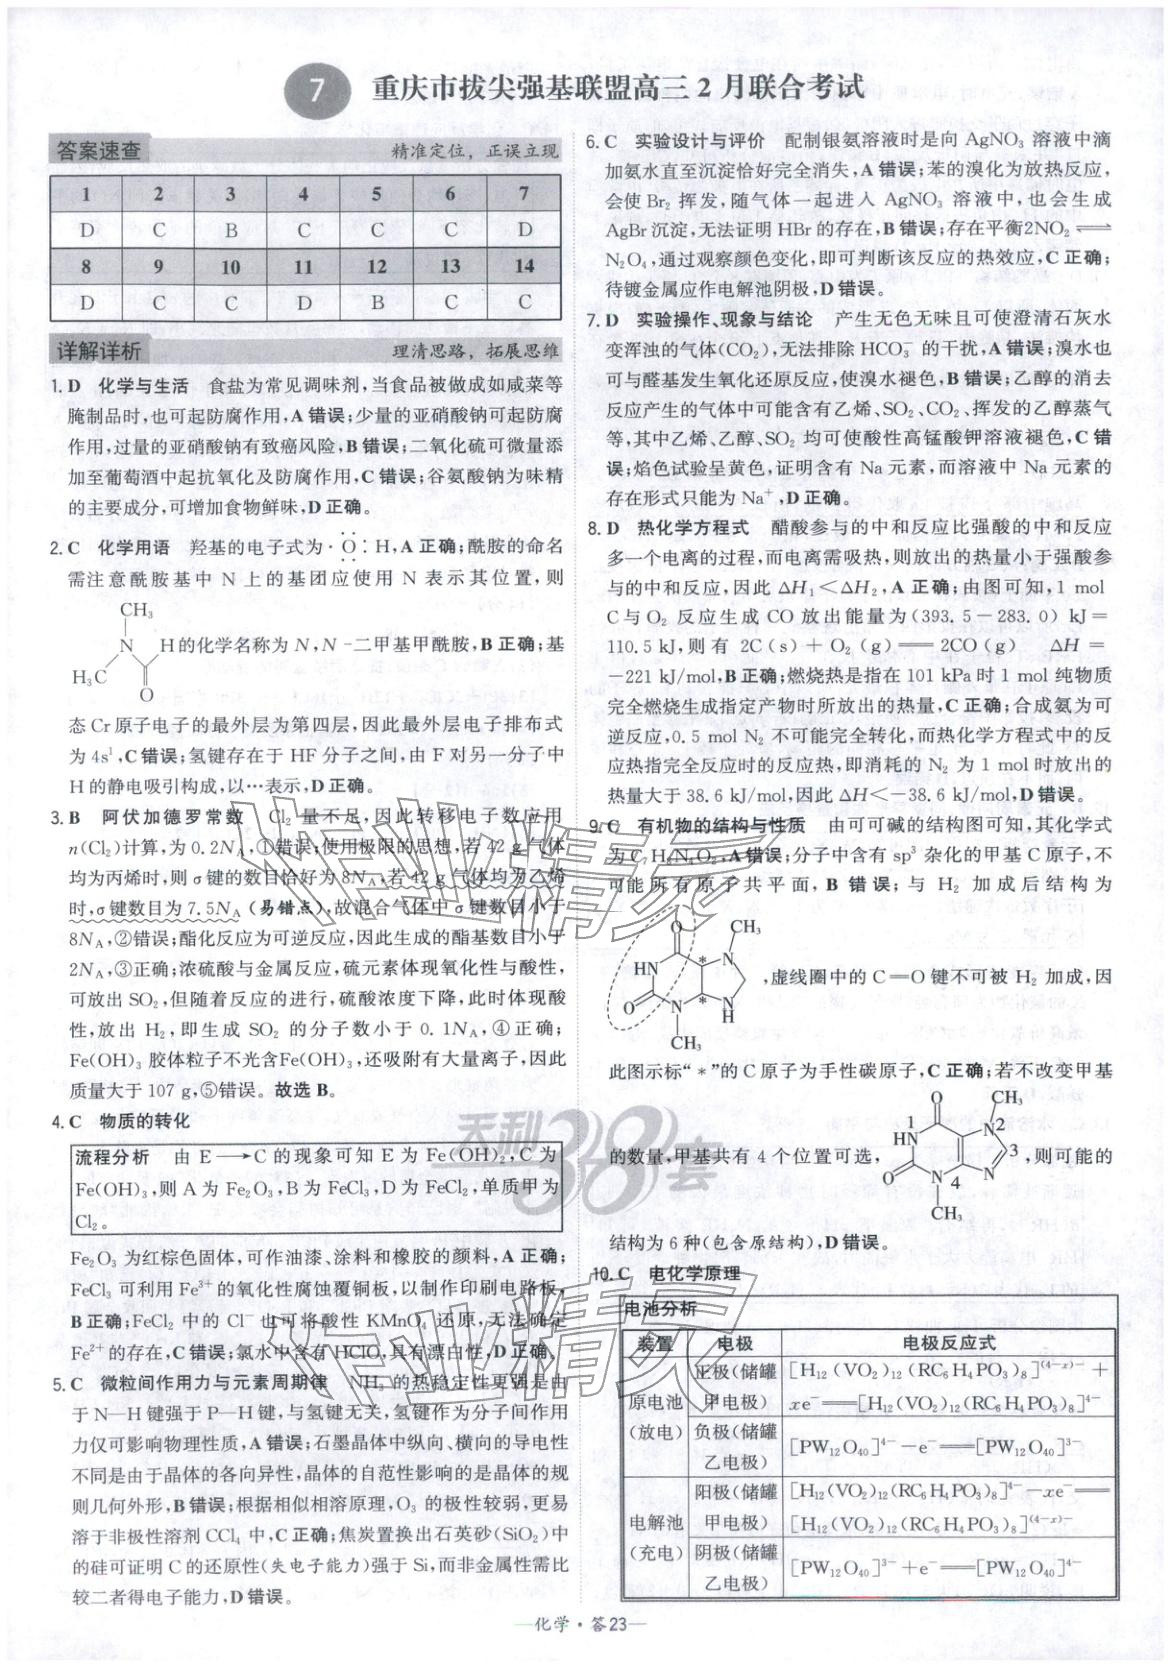 7 重庆市拔尖强基联盟高三2月联合考试
答案速查 精准定位，正误立现
1 2 3 4 5 6 7
D C B C C C D
8 9 10 11 12 13 14
D C C D B C C
详解详析 理清思路，拓展思维
1. D 化学与生活 食盐为常见调味剂,当食品被做成如咸菜等
腌制品时,也可起防腐作用,A 错误;少量的亚硝酸钠可起防腐
作用,过量的亚硝酸钠有致癌风险,B 错误;二氧化硫可微量添
加至葡萄酒中起抗氧化及防腐作用,C 错误;谷氨酸钠为味精
的主要成分,可增加食物鲜味,D 正确。
2. C 化学用语 羟基的电子式为·O:H,A 正确;酰胺的命名
需注意酰胺基中 N 上的基团应使用 N 表示其位置,则
CH₃
N H的化学名称为 N,N-二甲基甲酰胺,B 正确;基
H₃C
O
态Cr原子电子的最外层为第四层,因此最外层电子排布式
为 4s¹,C 错误;氢键存在于 HF 分子之间,由 F 对另一分子中
H 的静电吸引构成,以…表示,D 正确。
3. B 阿伏加德罗常数 Cl₂ 量不足,因此转移电子数应用
n(Cl₂)计算,为 0.2N_A,①错误;使用极限的思想,若 42 g 气体
均为丙烯时,则 σ 键的数目恰好为 8N_A,若 42 g 气体均为乙烯
时,σ键数目为 7.5N_A (易错点),故混合气体中 σ 键数目小于
8N_A,②错误;酯化反应为可逆反应,因此生成的酯基数目小于
2N_A,③正确;浓硫酸与金属反应,硫元素体现氧化性与酸性,
可放出 SO₂,但随着反应的进行,硫酸浓度下降,此时体现酸
性,放出 H₂,即生成 SO₂ 的分子数小于 0.1N_A,④正确;
Fe(OH)₃ 胶体粒子不光含Fe(OH)₃,还吸附有大量离子,因此
质量大于 107 g,⑤错误。故选 B。
4. C 物质的转化
流程分析 由 E⟶C 的现象可知 E 为 Fe(OH)₂,C 为
Fe(OH)₃,则 A 为 Fe₂O₃,B 为 FeCl₃,D 为 FeCl₂,单质甲为
Cl₂。
Fe₂O₃ 为红棕色固体,可作油漆、涂料和橡胶的颜料,A 正确;
FeCl₃ 可利用 Fe³⁺ 的氧化性腐蚀覆铜板,以制作印刷电路板,
B 正确;FeCl₂ 中的 Cl⁻ 也可将酸性 KMnO₄ 还原,无法确定
Fe²⁺ 的存在,C 错误;氯水中含有 HClO,具有漂白性,D 正确。
5. C 微粒间作用力与元素周期律 NH₃ 的热稳定性更强是由
于 N—H 键强于 P—H 键,与氢键无关,氢键作为分子间作用
力仅可影响物理性质,A 错误;石墨晶体中纵向、横向的导电性
不同是由于晶体的各向异性,晶体的自范性影响的是晶体的规
则几何外形,B 错误;根据相似相溶原理,O₃ 的极性较弱,更易
溶于非极性溶剂 CCl₄ 中,C 正确;焦炭置换出石英砂(SiO₂)中
的硅可证明 C 的还原性(失电子能力)强于 Si,而非金属性需比
较二者得电子能力,D 错误。
6. C 实验设计与评价 配制银氨溶液时是向 AgNO₃ 溶液中滴
加氨水直至沉淀恰好完全消失,A 错误;苯的溴化为放热反应,
会使 Br₂ 挥发,随气体一起进入 AgNO₃ 溶液中,也会生成
AgBr沉淀,无法证明 HBr 的存在,B 错误;存在平衡2NO₂⇌
N₂O₄,通过观察颜色变化,即可判断该反应的热效应,C 正确;
待镀金属应作电解池阴极,D 错误。
7. D 实验操作、现象与结论 产生无色无味且可使澄清石灰水
变浑浊的气体(CO₂),无法排除 HCO₃⁻ 的干扰,A 错误;溴水也
可与醛基发生氧化还原反应,使溴水褪色,B 错误;乙醇的消去
反应产生的气体中可能含有乙烯、SO₂、CO₂、挥发的乙醇蒸气
等,其中乙烯、乙醇、SO₂ 均可使酸性高锰酸钾溶液褪色,C 错
误;焰色试验呈黄色,证明含有 Na 元素,而溶液中 Na 元素的
存在形式只能为 Na⁺,D 正确。
8. D 热化学方程式 醋酸参与的中和反应比强酸的中和反应
多一个电离的过程,而电离需吸热,则放出的热量小于强酸参
与的中和反应,因此 ΔH₁<ΔH₂,A 正确;由图可知,1 mol
C与 O₂ 反应生成 CO 放出能量为(393.5-283.0) kJ=
110.5 kJ,则有 2C(s)+O₂(g)══2CO(g) ΔH=
-221 kJ/mol,B 正确;燃烧热是指在 101 kPa 时 1 mol 纯物质
完全燃烧生成指定产物时所放出的热量,C 正确;合成氨为可
逆反应,0.5 mol N₂ 不可能完全转化,而热化学方程式中的反
应热指完全反应时的反应热,即消耗的 N₂ 为 1 mol 时放出的
热量大于 38.6 kJ/mol,因此 ΔH<-38.6 kJ/mol,D 错误。
9. C 有机物的结构与性质 由可可碱的结构图可知,其化学式
为 C₇H₈N₄O₂,A 错误;分子中含有 sp³ 杂化的甲基 C 原子,不
可能所有原子共平面,B 错误;与 H₂ 加成后结构为
O CH₃
HN * N
,虚线圈中的 C═O 键不可被 H₂ 加成,因
O N * N
H
CH₃
此图示标“*”的 C 原子为手性碳原子,C 正确;若不改变甲基
O CH₃
1 HN N 2
的数量,甲基共有 4 个位置可选, 3 ,则可能的
O N 4 N
CH₃
结构为 6 种(包含原结构),D 错误。
10. C 电化学原理
电池分析
装置 电极 电极反应式
原电池(放电) 正极(储罐甲电极) [H₁₂(VO₂)₁₂(RC₆H₄PO₃)₈]⁽⁴⁻ˣ⁾⁻+
xe⁻══[H₁₂(VO₂)₁₂(RC₆H₄PO₃)₈]⁴⁻
负极(储罐乙电极) [PW₁₂O₄₀]⁴⁻-e⁻══[PW₁₂O₄₀]³⁻
电解池(充电) 阳极(储罐甲电极) [H₁₂(VO₂)₁₂(RC₆H₄PO₃)₈]⁴⁻-xe⁻══
[H₁₂(VO₂)₁₂(RC₆H₄PO₃)₈]⁽⁴⁻ˣ⁾⁻
阴极(储罐乙电极) [PW₁₂O₄₀]³⁻+e⁻══[PW₁₂O₄₀]⁴⁻
作业精灵
天利38套
作业精灵
—化学·答23—